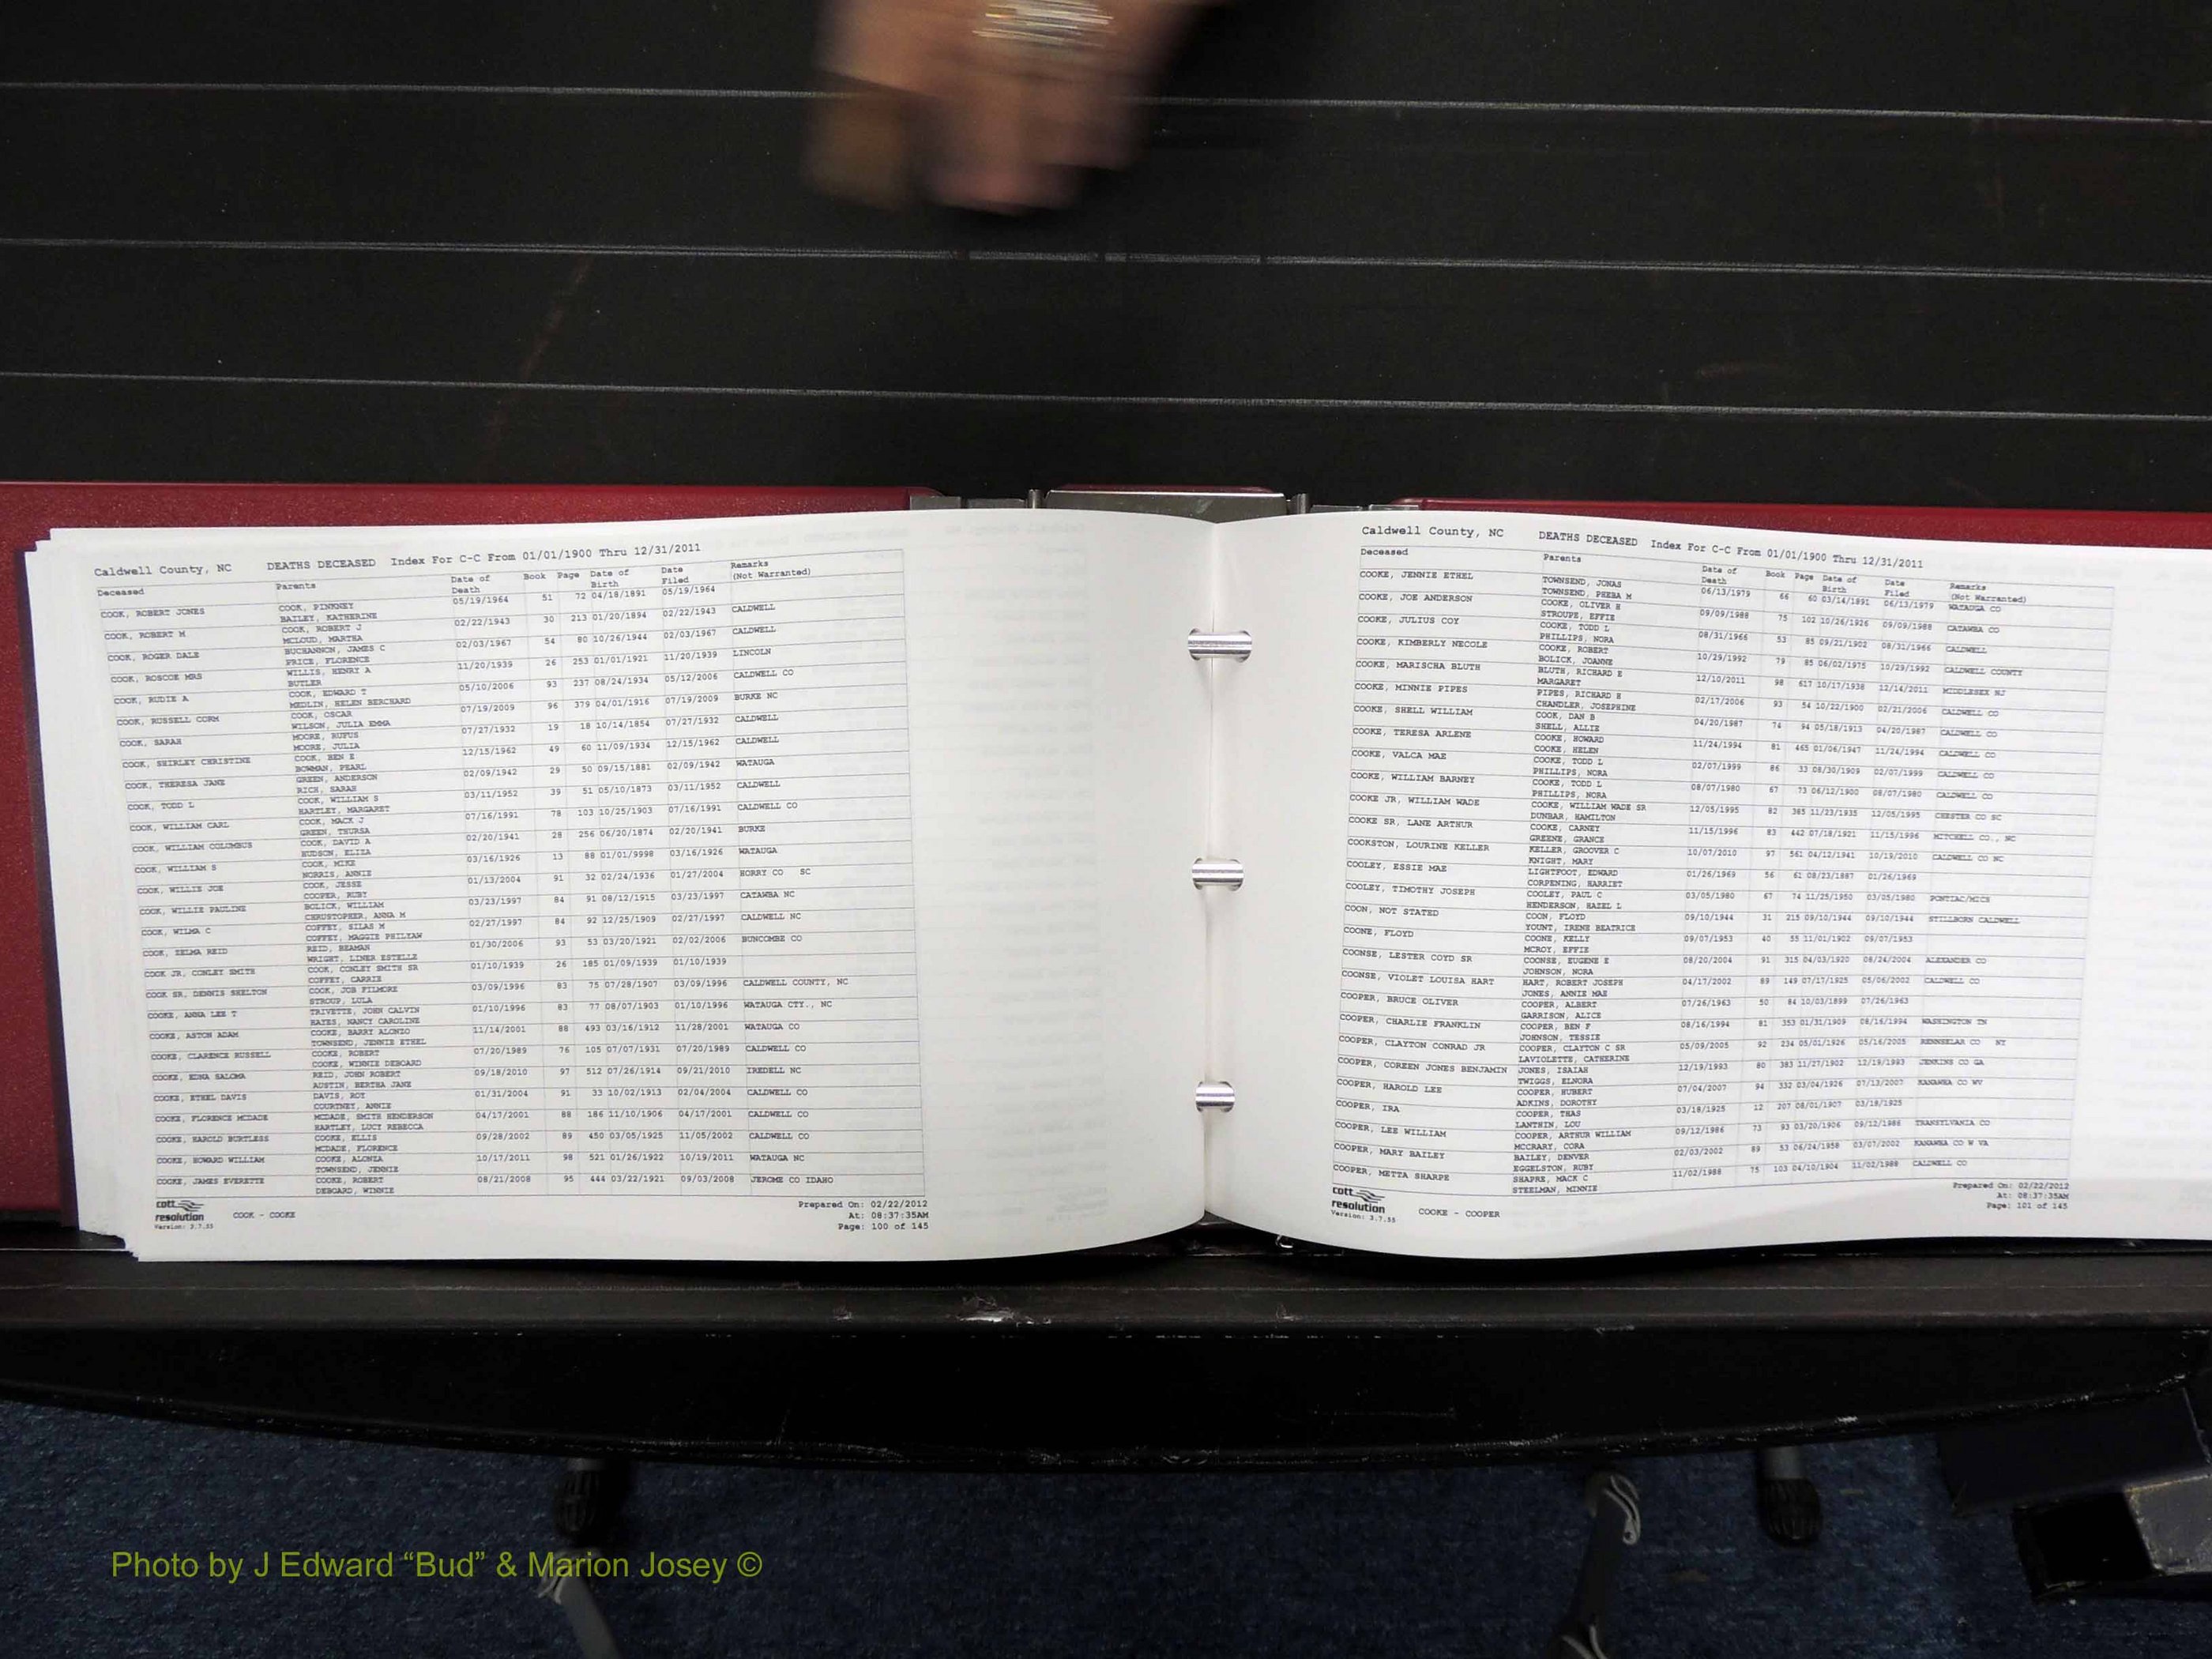 Caldwell County, NC DEATHS DECEASED Index For C-C From 01/01/1900 Thru 12/31/2011
Deceased Parents Date of Death Book Page Date of Birth Date Filed Remarks (Not Warranted)
COOK, ROBERT JONES COOK, PINKNEY 05/19/1964 51 72 04/18/1891 05/19/1964
BAILEY, KATHERINE
COOK, ROBERT M COOK, ROBERT J 02/22/1943 30 213 01/20/1894 02/22/1943 CALDWELL
MCLOUD, MARTHA
COOK, ROGER DALE BUCHANNON, JAMES C 02/03/1967 54 80 10/26/1944 02/03/1967 CALDWELL
PRICE, FLORENCE
COOK, ROSCOE MRS WILLIS, HENRY A 11/20/1939 26 253 01/01/1921 11/20/1939 LINCOLN
BUTLER
COOK, RUDIE A COOK, EDWARD T 05/10/2006 93 237 08/24/1934 05/12/2006 CALDWELL CO
MEDLIN, HELEN BERCHARD
COOK, RUSSELL CORM COOK, OSCAR 07/19/2009 96 379 04/01/1916 07/19/2009 BURKE NC
WILSON, JULIA EMMA
COOK, SARAH MOORE, RUFUS 07/27/1932 19 18 10/14/1854 07/27/1932 CALDWELL
MOORE, JULIA
COOK, SHIRLEY CHRISTINE COOK, BEN E 12/15/1962 49 60 11/09/1934 12/15/1962 CALDWELL
BOWMAN, PEARL
COOK, THERESA JANE GREEN, ANDERSON 02/09/1942 29 50 09/15/1881 02/09/1942 WATAUGA
RICH, SARAH
COOK, TODD L COOK, WILLIAM S 03/11/1952 39 51 05/10/1873 03/11/1952 CALDWELL
HARTLEY, MARGARET
COOK, WILLIAM CARL COOK, MACK J 07/16/1991 78 103 10/25/1903 07/16/1991 CALDWELL CO
GREEN, THURSA
COOK, WILLIAM COLUMBUS COOK, DAVID A 02/20/1941 28 256 06/20/1874 02/20/1941 BURKE
HUDSON, ELIZA
COOK, WILLIAM S COOK, MIKE 03/16/1926 13 88 01/01/9998 03/16/1926 WATAUGA
NORRIS, ANNIE
COOK, WILLIE JOE COOK, JESSE 01/13/2004 91 32 02/24/1936 01/27/2004 HORRY CO SC
COOPER, RUBY
COOK, WILLIE PAULINE BOLICK, WILLIAM 03/23/1997 84 91 08/12/1915 03/23/1997 CATAWBA NC
CHRUSTOPHER, ANNA M
COOK, WILMA C COFFEY, SILAS M 02/27/1997 84 92 12/25/1909 02/27/1997 CALDWELL NC
COFFEY, MAGGIE PHILYAW
COOK, ZELMA REID REID, BEAMAN 01/30/2006 93 53 03/20/1921 02/02/2006 BUNCOMBE CO
WRIGHT, LINER ESTELLE
COOK JR, CONLEY SMITH COOK, CONLEY SMITH SR 01/10/1939 26 185 01/09/1939 01/10/1939
COFFEY, CARRIE
COOK SR, DENNIS SHELTON COOK, JOB FILMORE 03/09/1996 83 75 07/28/1907 03/09/1996 CALDWELL COUNTY, NC
STROUP, LULA
COOKE, ANNA LEE T TRIVETTE, JOHN CALVIN 01/10/1996 83 77 08/07/1903 01/10/1996 WATAUGA CTY., NC
HAYES, NANCY CAROLINE
COOKE, ASTON ADAM COOKE, BARRY ALONZO 11/14/2001 88 493 03/16/1912 11/28/2001 WATAUGA CO
TOWNSEND, JENNIE ETHEL
COOKE, CLARENCE RUSSELL COOKE, ROBERT 07/20/1989 76 105 07/07/1931 07/20/1989 CALDWELL CO
COOKE, WINNIE DEBOARD
COOKE, EDNA SALOMA REID, JOHN ROBERT 09/18/2010 97 512 07/26/1914 09/21/2010 IREDELL NC
AUSTIN, BERTHA JANE
COOKE, ETHEL DAVIS DAVIS, ROY 01/31/2004 91 33 10/02/1913 02/04/2004 CALDWELL CO
COURTNEY, ANNIE
COOKE, FLORENCE MCDADE MCDADE, SMITH HENDERSON 04/17/2001 88 186 11/10/1906 04/17/2001 CALDWELL CO
HARTLEY, LUCY REBECCA
COOKE, HAROLD BURTLESS COOKE, ELLIS 09/28/2002 89 450 03/05/1925 11/05/2002 CALDWELL CO
MCDADE, FLORENCE
COOKE, HOWARD WILLIAM COOKE, ALONZA 10/17/2011 98 521 01/26/1922 10/19/2011 WATAUGA NC
TOWNSEND, JENNIE
COOKE, JAMES EVERETTE COOKE, ROBERT 08/21/2008 95 444 03/22/1921 09/03/2008 JEROME CO IDAHO
DEBOARD, WINNIE
cott resolution
Version: 3.7.55
COOK - COOKE
Prepared On: 02/22/2012
At: 08:37:35AM
Page: 100 of 145
Caldwell County, NC DEATHS DECEASED Index For C-C From 01/01/1900 Thru 12/31/2011
Deceased Parents Date of Death Book Page Date of Birth Date Filed Remarks (Not Warranted)
COOKE, JENNIE ETHEL TOWNSEND, JONAS 06/13/1979 66 60 03/14/1891 06/13/1979 WATAUGA CO
TOWNSEND, PHEBA M
COOKE, JOE ANDERSON COOKE, OLIVER H 09/09/1988 75 102 10/26/1926 09/09/1988 CATAWBA CO
STROUPE, EFFIE
COOKE, JULIUS COY COOKE, TODD L 08/31/1966 53 85 09/21/1902 08/31/1966 CALDWELL
PHILLIPS, NORA
COOKE, KIMBERLY NECOLE COOKE, ROBERT 10/29/1992 79 85 06/02/1975 10/29/1992 CALDWELL COUNTY
BOLICK, JOANNE
COOKE, MARISCHA BLUTH BLUTH, RICHARD E 12/10/2011 98 617 10/17/1938 12/14/2011 MIDDLESEX NJ
MARGARET
COOKE, MINNIE PIPES PIPES, RICHARD H 02/17/2006 93 54 10/22/1900 02/21/2006 CALDWELL CO
CHANDLER, JOSEPHINE
COOKE, SHELL WILLIAM COOK, DAN B 04/20/1987 74 94 05/18/1913 04/20/1987 CALDWELL CO
SHELL, ALLIE
COOKE, TERESA ARLENE COOKE, HOWARD 11/24/1994 81 465 01/06/1947 11/24/1994 CALDWELL CO
COOKE, HELEN
COOKE, VALCA MAE COOKE, TODD L 02/07/1999 86 33 08/30/1909 02/07/1999 CALDWELL CO
PHILLIPS, NORA
COOKE, WILLIAM BARNEY COOKE, TODD L 08/07/1980 67 73 06/12/1900 08/07/1980 CALDWELL CO
PHILLIPS, NORA
COOKE JR, WILLIAM WADE COOKE, WILLIAM WADE SR 12/05/1995 82 385 11/23/1935 12/05/1995 CHESTER CO SC
DUNBAR, HAMILTON
COOKE SR, LANE ARTHUR COOKE, CARNEY 11/15/1996 83 442 07/18/1921 11/15/1996 MITCHELL CO., NC
GREENE, GRANCE
COOKSTON, LOURINE KELLER KELLER, GROOVER C 10/07/2010 97 561 04/12/1941 10/19/2010 CALDWELL CO NC
KNIGHT, MARY
COOLEY, ESSIE MAE LIGHTFOOT, EDWARD 01/26/1969 56 61 08/23/1887 01/26/1969
CORPENING, HARRIET
COOLEY, TIMOTHY JOSEPH COOLEY, PAUL C 03/05/1980 67 74 11/25/1950 03/05/1980 PONTIAC/MICH
HENDERSON, HAZEL L
COON, NOT STATED COON, FLOYD 09/10/1944 31 215 09/10/1944 09/10/1944 STILLBORN CALDWELL
YOUNT, IRENE BEATRICE
COONE, FLOYD COONE, KELLY 09/07/1953 40 55 11/01/1902 09/07/1953
MCROY, EFFIE
COONSE, LESTER COYD SR COONSE, EUGENE E 08/20/2004 91 315 04/03/1920 08/24/2004 ALEXANDER CO
JOHNSON, NORA
COONSE, VIOLET LOUISA HART HART, ROBERT JOSEPH 04/17/2002 89 149 07/17/1925 05/06/2002 CALDWELL CO
JONES, ANNIE MAE
COOPER, BRUCE OLIVER COOPER, ALBERT 07/26/1963 50 84 10/03/1899 07/26/1963
GARRISON, ALICE
COOPER, CHARLIE FRANKLIN COOPER, BEN F 08/16/1994 81 353 01/31/1909 08/16/1994 WASHINGTON TN
JOHNSON, TESSIE
COOPER, CLAYTON CONRAD JR COOPER, CLAYTON C SR 05/09/2005 92 234 05/01/1926 05/16/2005 RENNSELAR CO NY
LAVIOLETTE, CATHERINE
COOPER, COREEN JONES BENJAMIN JONES, ISAIAH 12/19/1993 80 383 11/27/1902 12/19/1993 JENKINS CO GA
TWIGGS, ELNORA
COOPER, HAROLD LEE COOPER, HUBERT 07/04/2007 94 332 03/04/1926 07/13/2007 KANAWHA CO WV
ADKINS, DOROTHY
COOPER, IRA COOPER, THAS 03/18/1925 12 207 08/01/1907 03/18/1925
LANTHIN, LOU
COOPER, LEE WILLIAM COOPER, ARTHUR WILLIAM 09/12/1986 73 93 03/20/1906 09/12/1986 TRANSYLVANIA CO
MCCRARY, CORA
COOPER, MARY BAILEY BAILEY, DENVER 02/03/2002 89 53 06/24/1958 03/07/2002 KANAWHA CO W VA
EGGELSTON, RUBY
COOPER, METTA SHARPE SHAPRE, MACK C 11/02/1988 75 103 04/10/1904 11/02/1988 CALDWELL CO
STEELMAN, MINNIE
cott resolution
Version: 3.7.55
COOKE - COOPER
Prepared On: 02/22/2012
At: 08:37:35AM
Page: 101 of 145
Photo by J Edward “Bud” & Marion Josey ©